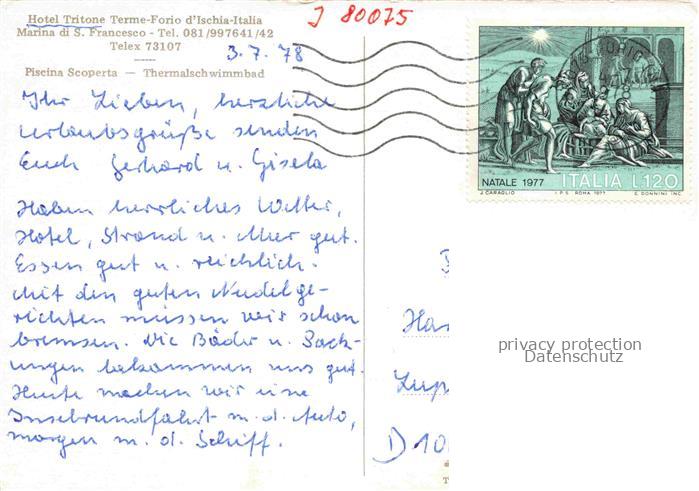 J 80075
Hotel Tritone Terme-Forio d'Ischia-Italia
Marina di S. Francesco - Tel. 081/997641/42
Telex 73107
3.7.78
Piscina Scoperta — Thermalschwimmbad
Ihr Lieben, herzliche
Urlaubsgrüße senden
Euch Gerhard u. Gisela
Haben herrliches Wetter,
Hotel, Strand u. Meer gut.
Essen gut u. reichlich.
Mit den guten Nudelge-
richten müssen wir schon
bremsen. Die Bäder u. Pack-
ungen bekommen uns gut.
Heute machen wir eine
Inselrundfahrt m. d. Auto,
morgen m. d. Schiff.
NATALE 1977 ITALIA L.120
J. CARAGLIO I.P.S. ROMA 1977 E. DONNINI INC.
privacy protection
Datenschutz
D 10